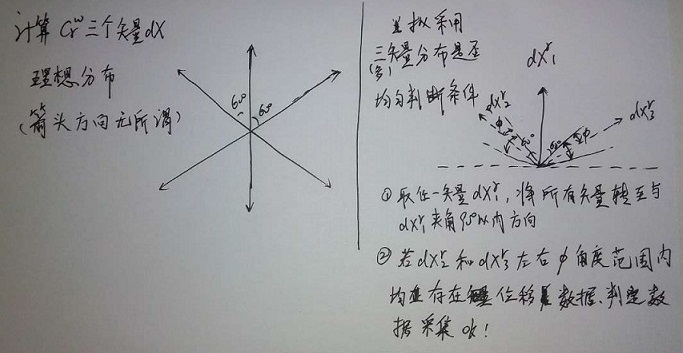 计算 Crw 三个矢量dX
理想分布
(箭头方向无所谓)
60° 60°
拟采用
三矢量分布是否
(多)
均匀判断条件
dX1r
dX2r
dX3r
φ 60° 60° φ
① 取任一矢量dX1r,将所有矢量转至与
dX1r夹角90°以内方向
② 若dX2r和dX3r左右φ角度范围内
均存在位移数据、判定数
据采集ok!